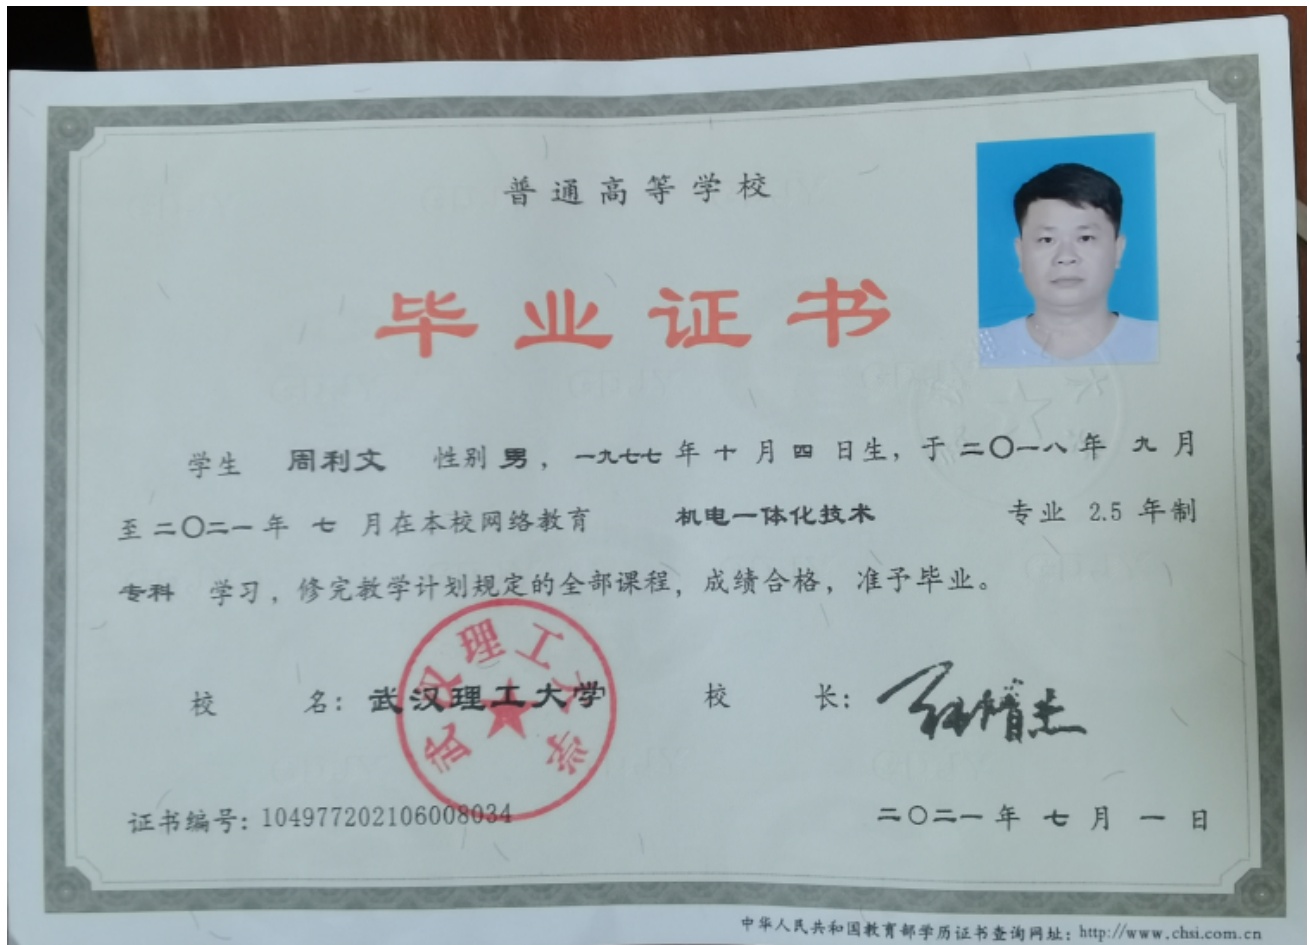 普通高等学校
毕业证书
学生 周利文 性别 男，一九七七 年 十 月 四 日生，于 二〇一八 年 九 月
至 二〇二一 年 七 月在本校网络教育 机电一体化技术 专业 2.5 年制
专科 学习，修完教学计划规定的全部课程，成绩合格，准予毕业。
武汉理工大学
校 名：武汉理工大学 校 长：
证书编号：104977202106008034 二〇二一 年 七 月 一 日
中华人民共和国教育部学历证书查询网址：http://www.chsi.com.cn